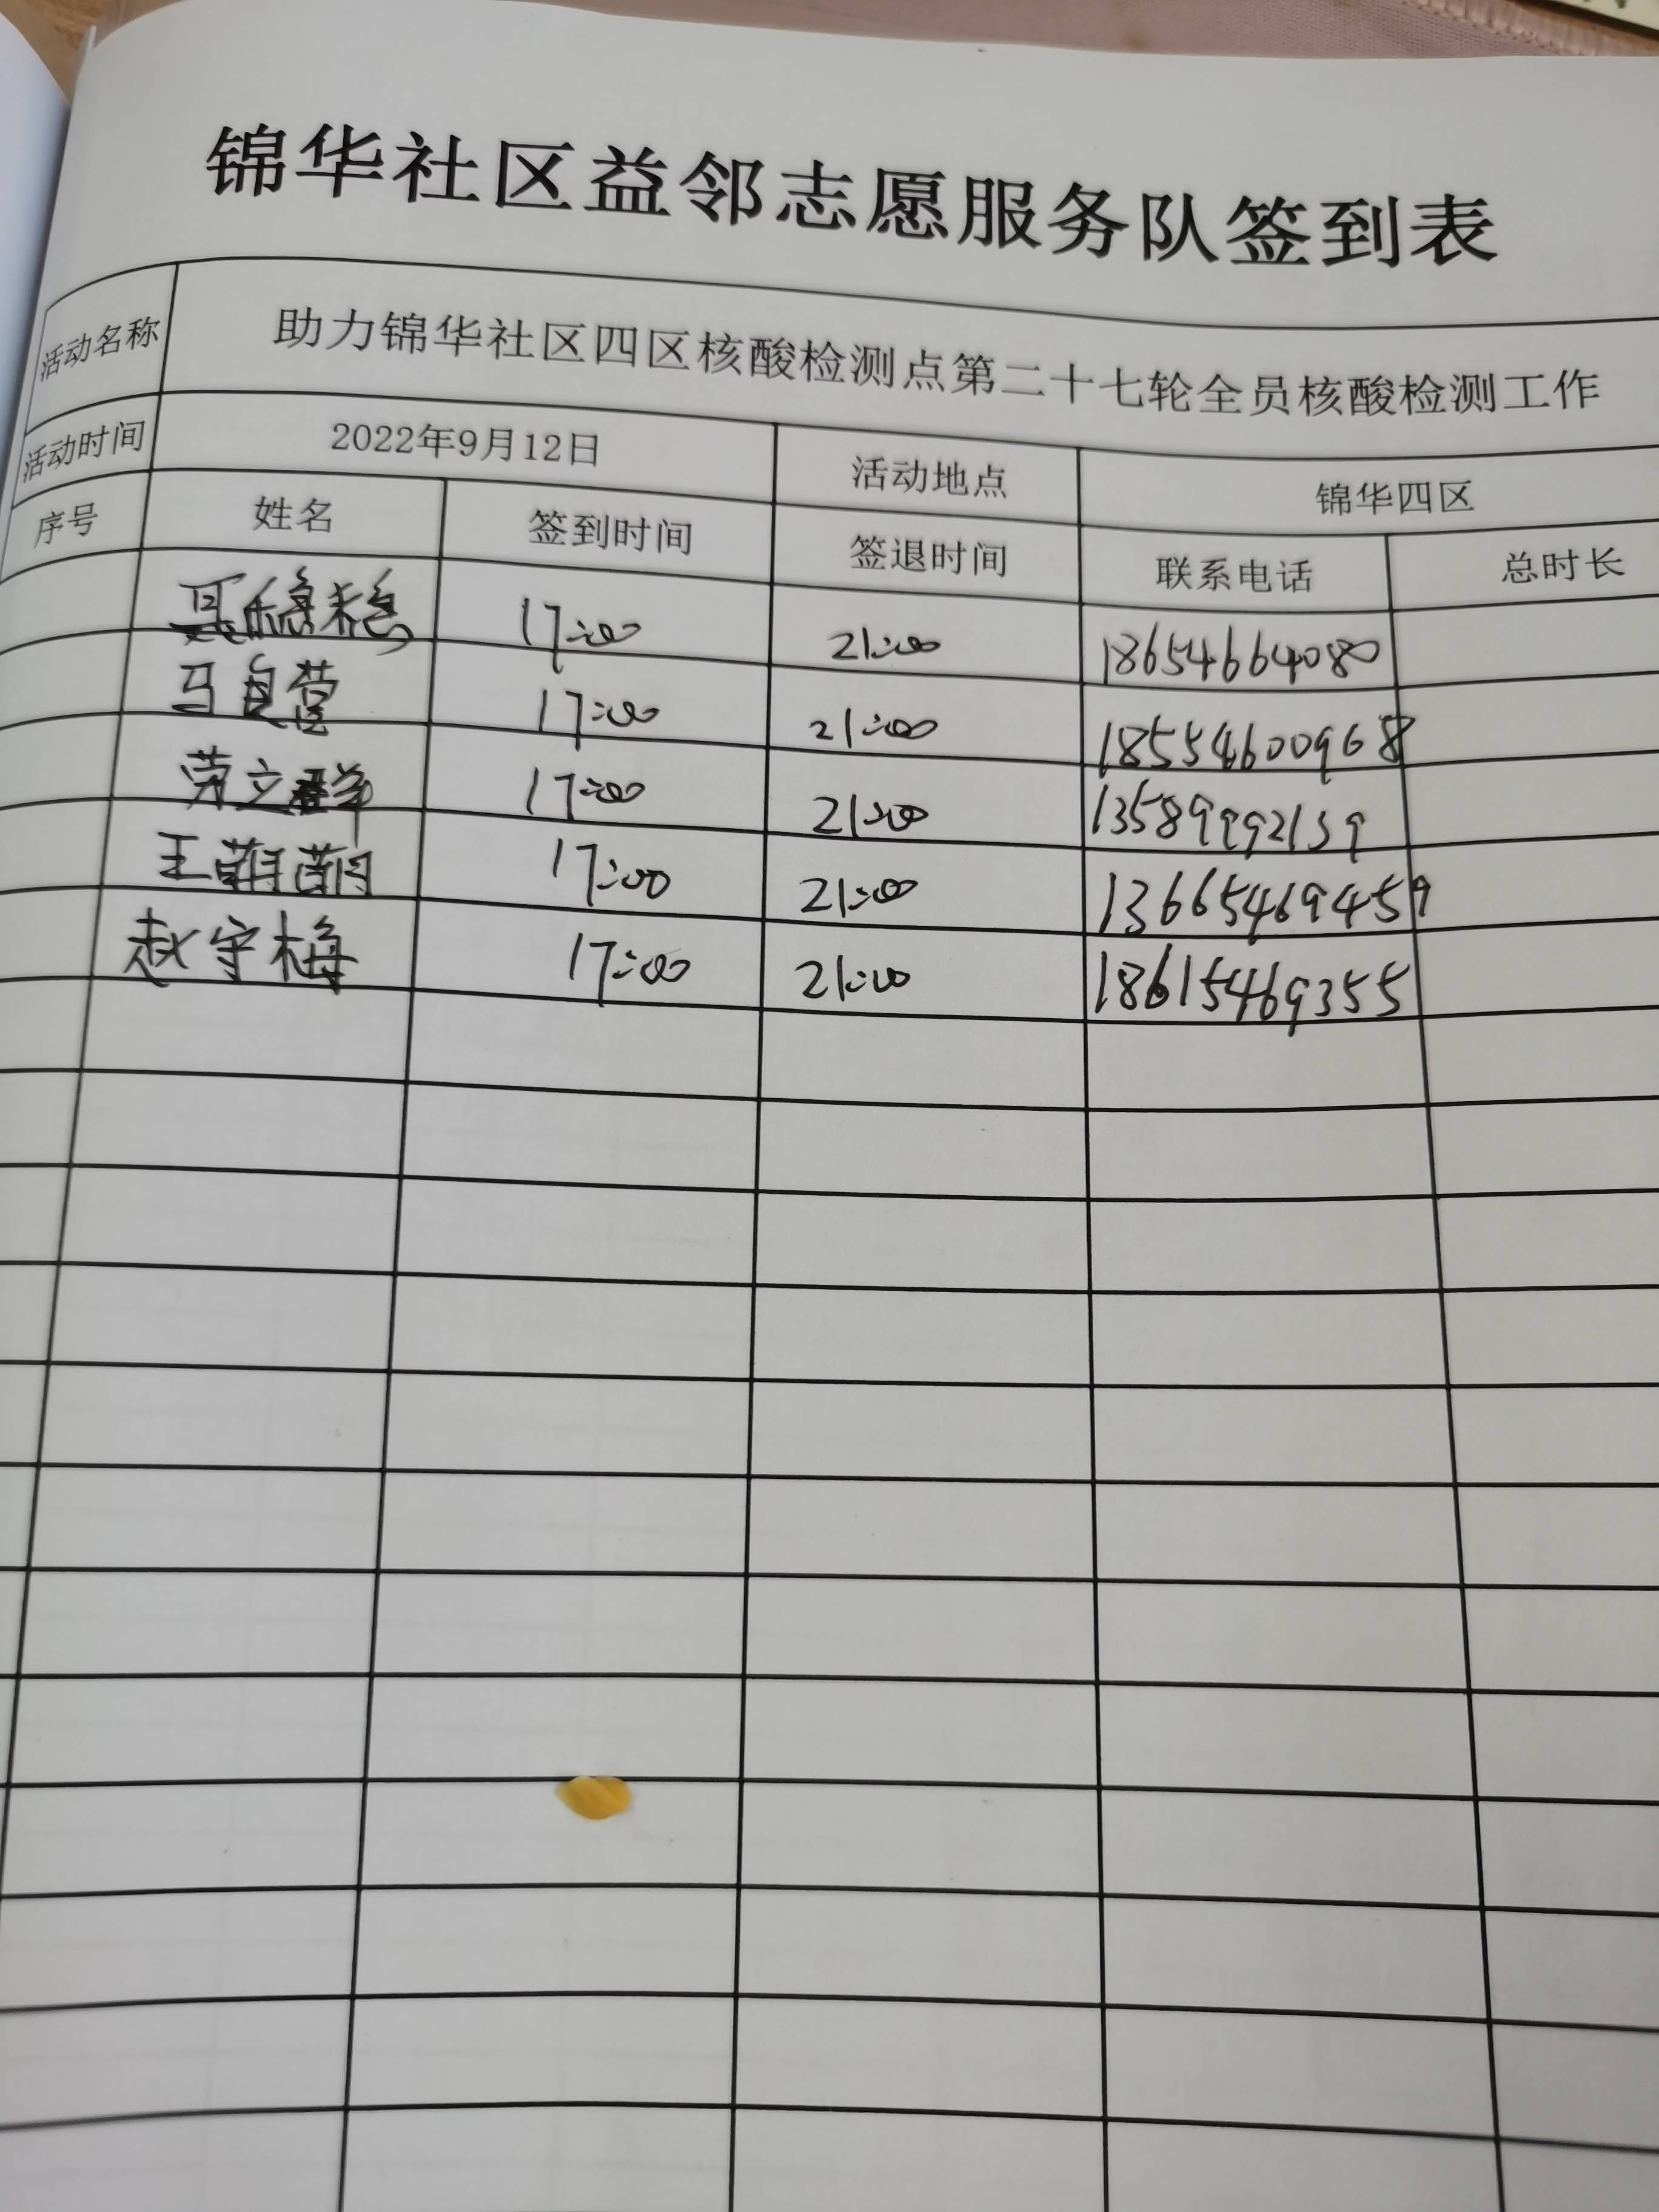 锦华社区益邻志愿服务队签到表
活动名称 助力锦华社区四区核酸检测点第二十七轮全员核酸检测工作
活动时间 2022年9月12日 活动地点 锦华四区
序号 姓名 签到时间 签退时间 联系电话 总时长
聂稳稳 17:00 21:00 18654664080
马自营 17:00 21:00 18554600968
荣立群 17:00 21:00 13589992139
王萌萌 17:00 21:00 13665469459
赵守梅 17:00 21:00 18615469355